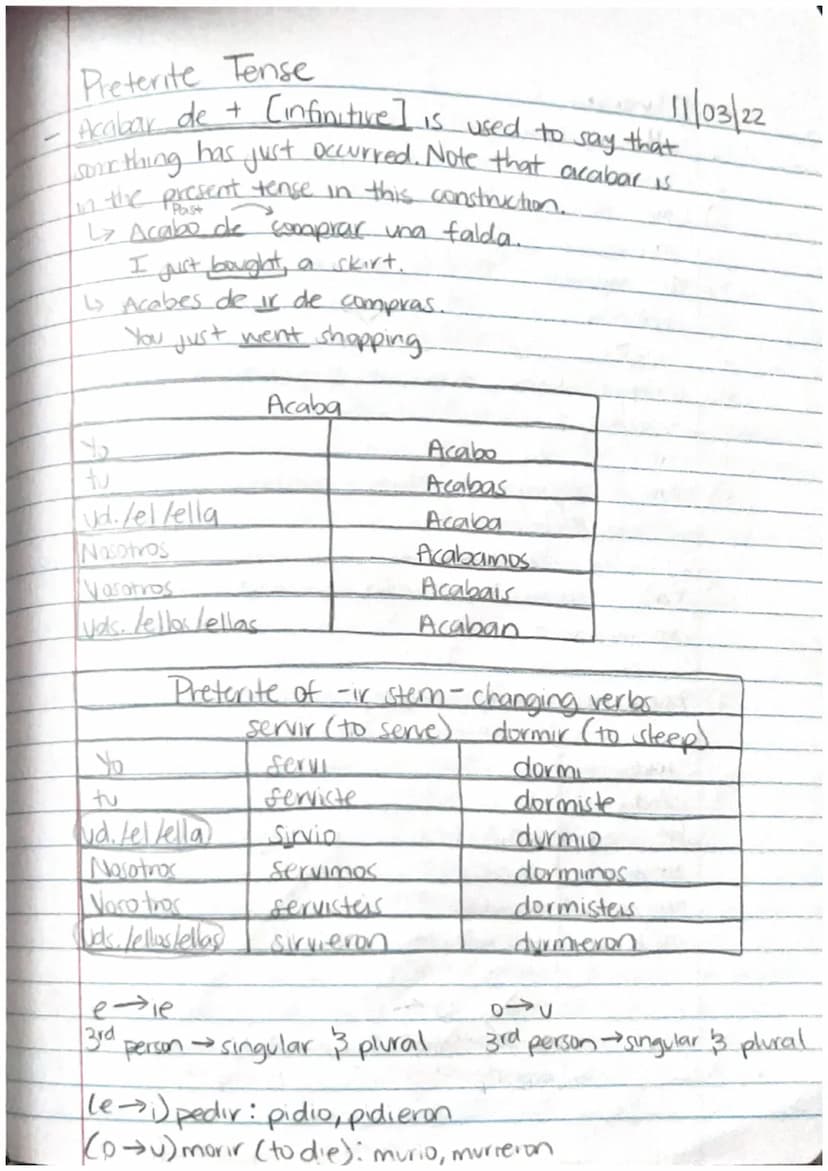 Preterite Tense
11/03/22
- Acabar de + [infinitive] is used to say that
something has just occurred. Note that acabar is
in the present tense in this construction.
Past
↳ Acabo de comprar una falda.
I just bought, a skirt.
↳ Acabes de ir de compras.
You just went shopping
Acaba
Yo Acabo
tu Acabas
Ud./el/ella Acaba
Nosotros Acabamos
Vosotros Acabais
Uds./ellos/ellas Acaban
Preterite of -ir stem-changing verbs
servir (to serve) dormir (to sleep)
Yo servi dormi
tu serviste dormiste
Ud./el/ella sirvio durmio
Nosotros servimos dormimos
Vosotros servisteis dormisteis
Uds./ellos/ellas sirvieron durmieron
e→ie o→u
3rd person → singular & plural 3rd person → singular & plural
(e→i) pedir: pidio, pidieron
(o→u) morir (to die): murio, murieron